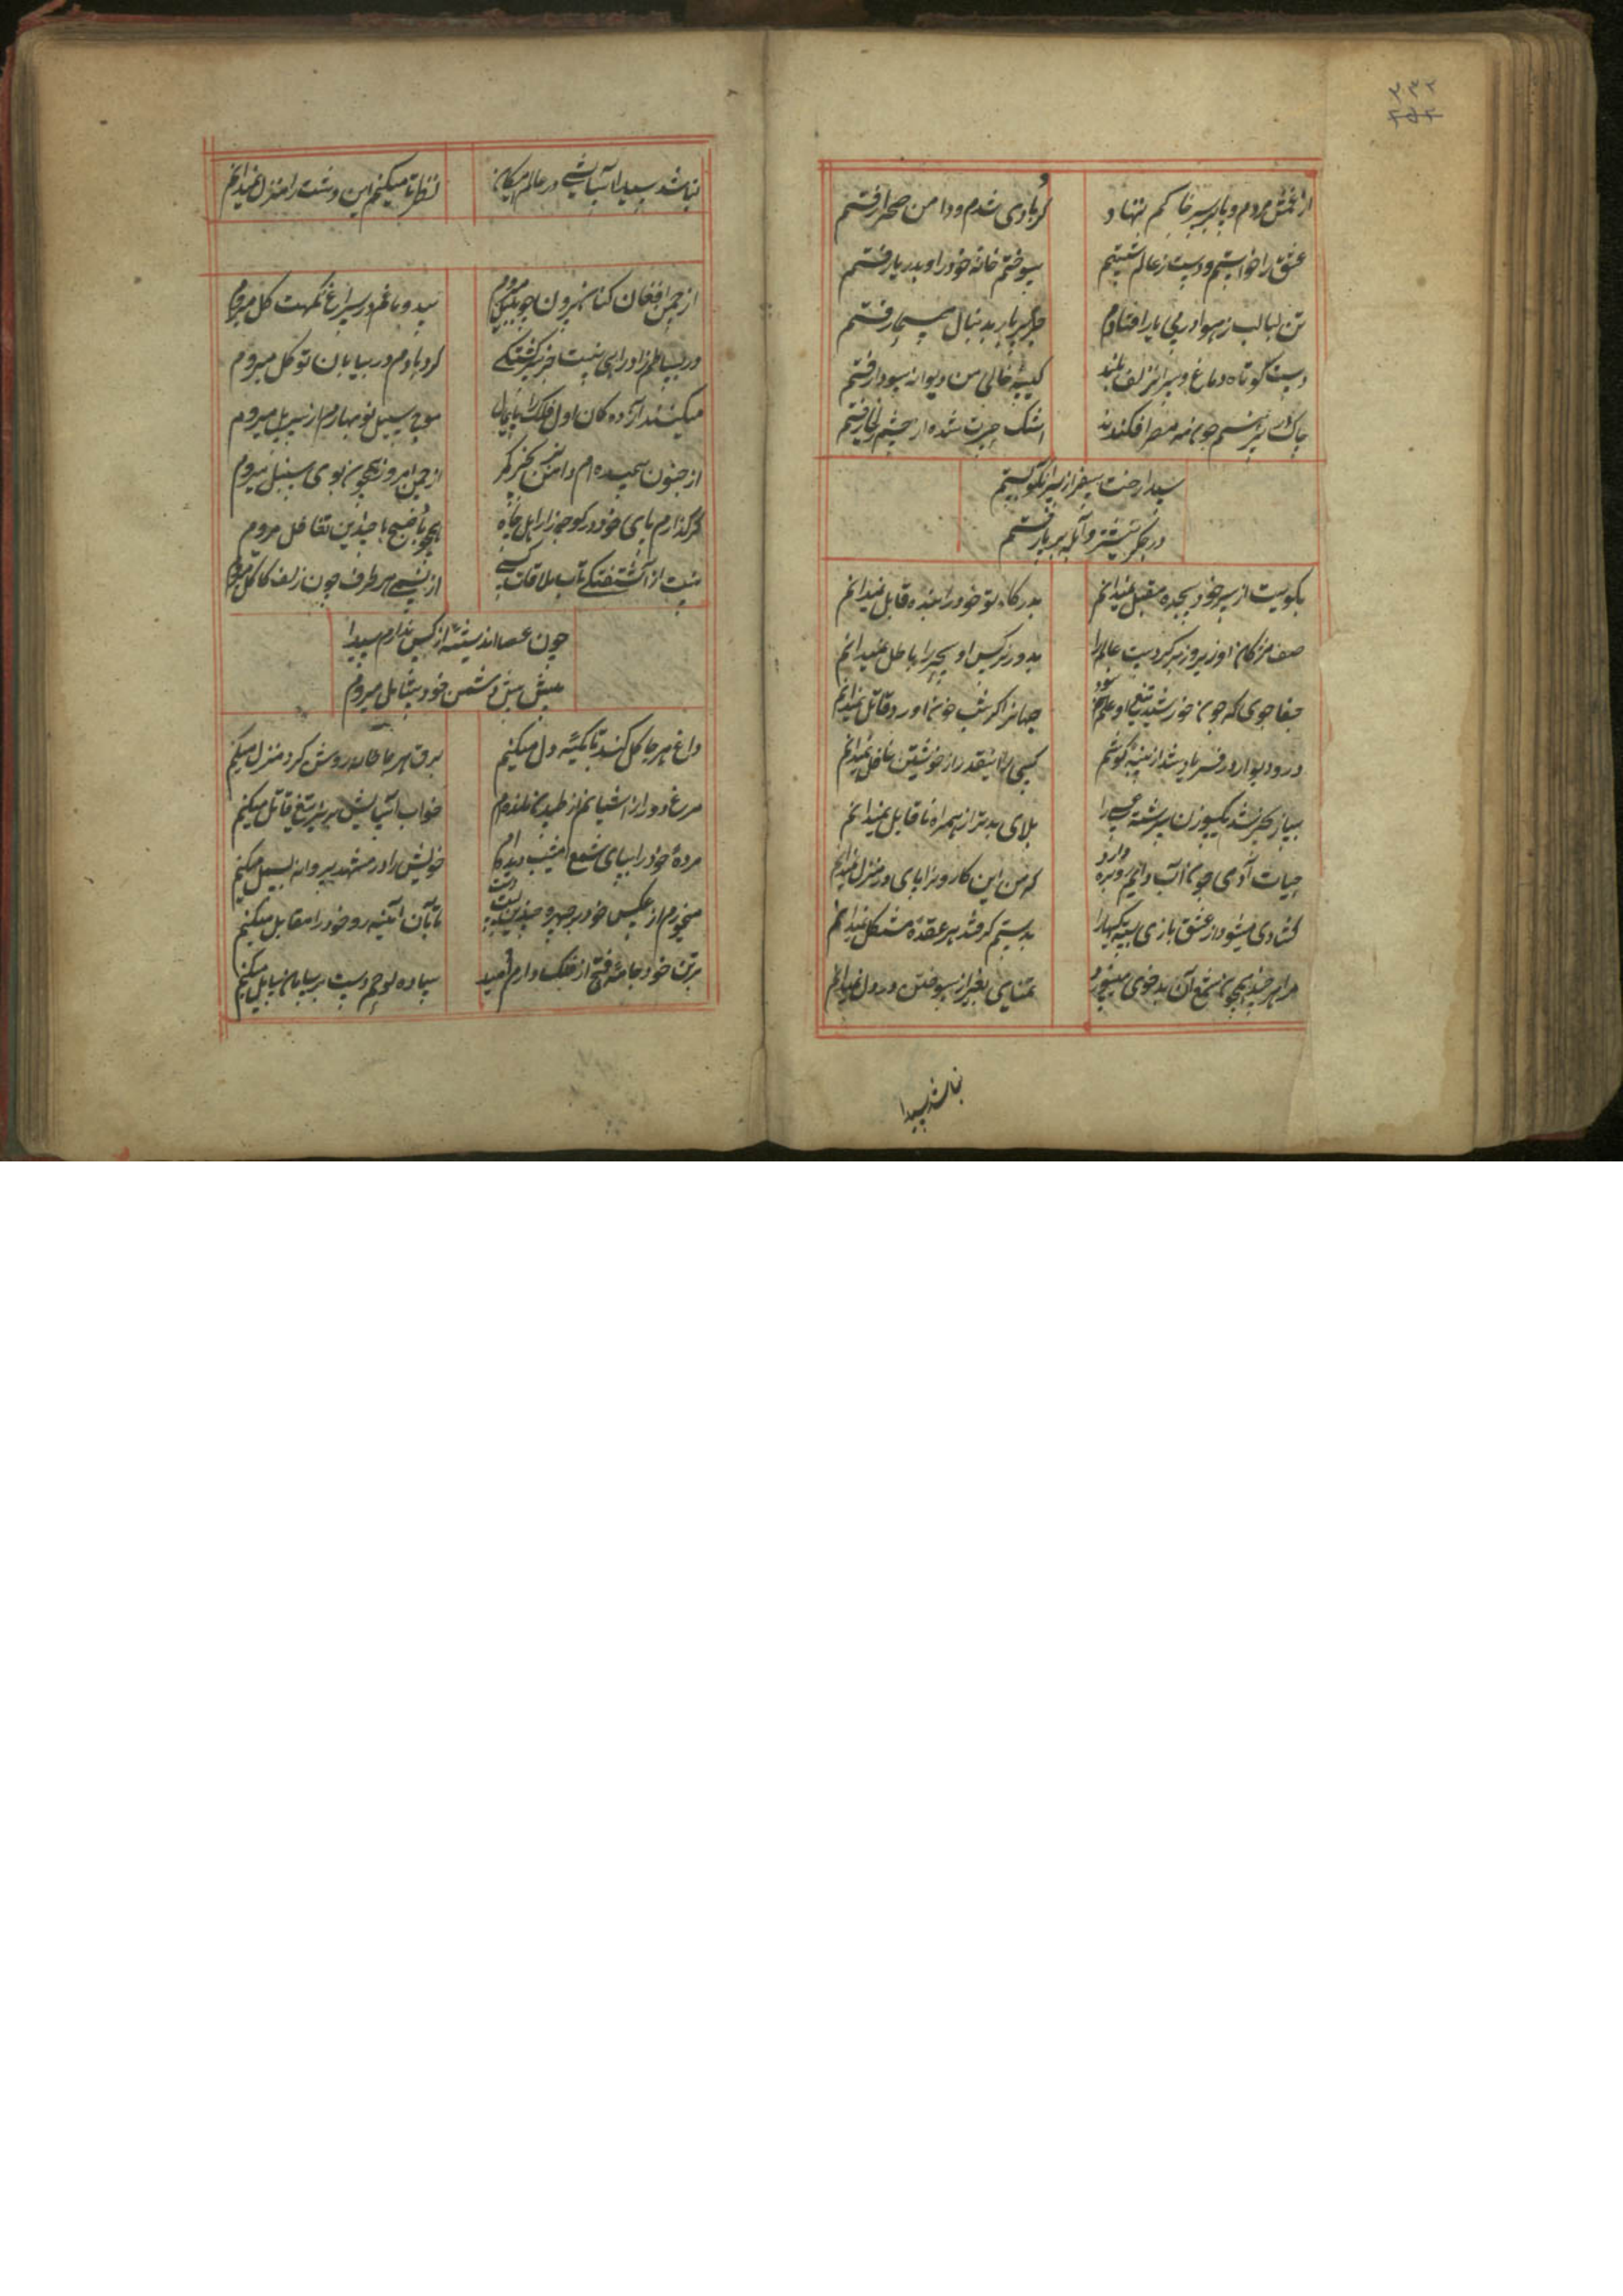 از غمش مردم و پا بر سر خاکم ننهاد
گردبادی شدم و دامن صحرا رفتم
عشق را خواستم و دست ز عالم شستم
سوختم خانه خود را و بدر یار رفتم
تن لبالب ز هوا در پی یار افتادم
بدنبال رفتم
دست کوتاه و دماغ و سر آن زلف بلند
کیسه خالی من دیوانه بسودا رفتم
چاک
اشک حسرت شده از چشم رفتم
سیدا رخت سفر از سر آن کو بستم
در جگر نشتر و آبله بر پا رفتم
بکویت از سر خود سجده مقبل نمیدانم
بدرگاه تو خود را بنده قابل نمیدانم
صف مژگان او زیر و زبر کردست عالم را
بدور نرگس او سحر را باطل نمیدانم
جفاجوی که چون خورشید تیغ او علم گردد
جهان را گر شب خون آورد قاتل نمیدانم
در و دیوار در فریاد شد از پنبه گوشم
کسی را اینقدر از خویشتن غافل نمیدانم
سیاز بحر شد یکسوزن سررشته عیسی را
بلای بدتر از همراه ناقابل نمیدانم
حیات آدمی چون آب دایم رو بره دارد
که من این کاروان را پای در منزل نمیدانم
گشادی میشود از عشق بازی بسته کاران را
بدستم گر فتد هر عقده مشکل نمیدانم
مرا هر چند همچون شمع آن بدخوی میسوزد
تمنای بغیر از سوختن در دل نمیدانم
نباشد سیدا
نباشد سیدا آسایشی در عالم امکان
نظر تا میکنم این دشت را منزل نمیدانم
از چمن افغان کنان بیرون چو بلبل میروم
بیدماغم در سراغ نکهت گل میروم
در بساطم زاد راهی نیست جز سرگشتگی
گردبادم در بیابان توکل میروم
میکشند آزادگان اول فلک را پایمال
موج سیل نوبهارم از سر پل میروم
از جنون پیچیده ام دامن
از چمن امروز همچون بوی سنبل میروم
گر گذارم پای خود در کوچه زار اهل جاه
همچو باد صبح با چندین تغافل میروم
نیست از آشفتگی تاب ملاقات کسی
از پیش هر طرف چون زلف کاکل میروم
چون عصا اندیشه از کس ندارم سیدا
پیش پیش دشمن خود بی تامل میروم
داغ هر جا گل کند تا تکیه دل میکنم
برق هر جا خانه روشن کرد منزل میکنم
مرغ دور از آشیانم از طپیدن مانده ام
خواب آسایش بزیر تیغ قاتل میکنم
مرده خود را بپای شمع امشب دیده ام
خویش را در مشهد پروانه بسمل میکنم
میخورم از عکس خود بر چهره چندین پشت دست
تا بآن آیینه رو خود را مقابل میکنم
بر تن خود جامه فتح از فلک دارم امید
ساده لوحم دست بر سایل میکنم